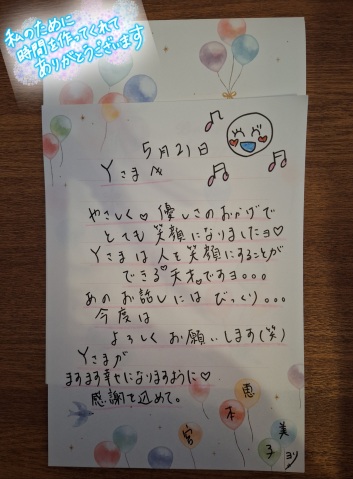 私のために
時間を作ってくれて
ありがとうございます
5月21日
Yさまへ
やさしく♡優しさのおかげで
とても笑顔になりましたョ♡
Yさまは人を笑顔にすることが
できる天才ですョ。。。
あのお話しにはびっくり。。。
今度は
よろしくお願いします(笑)
Yさまが
ますます幸せになりますように♡
感謝を込めて。
宮木恵美子
ヨリ